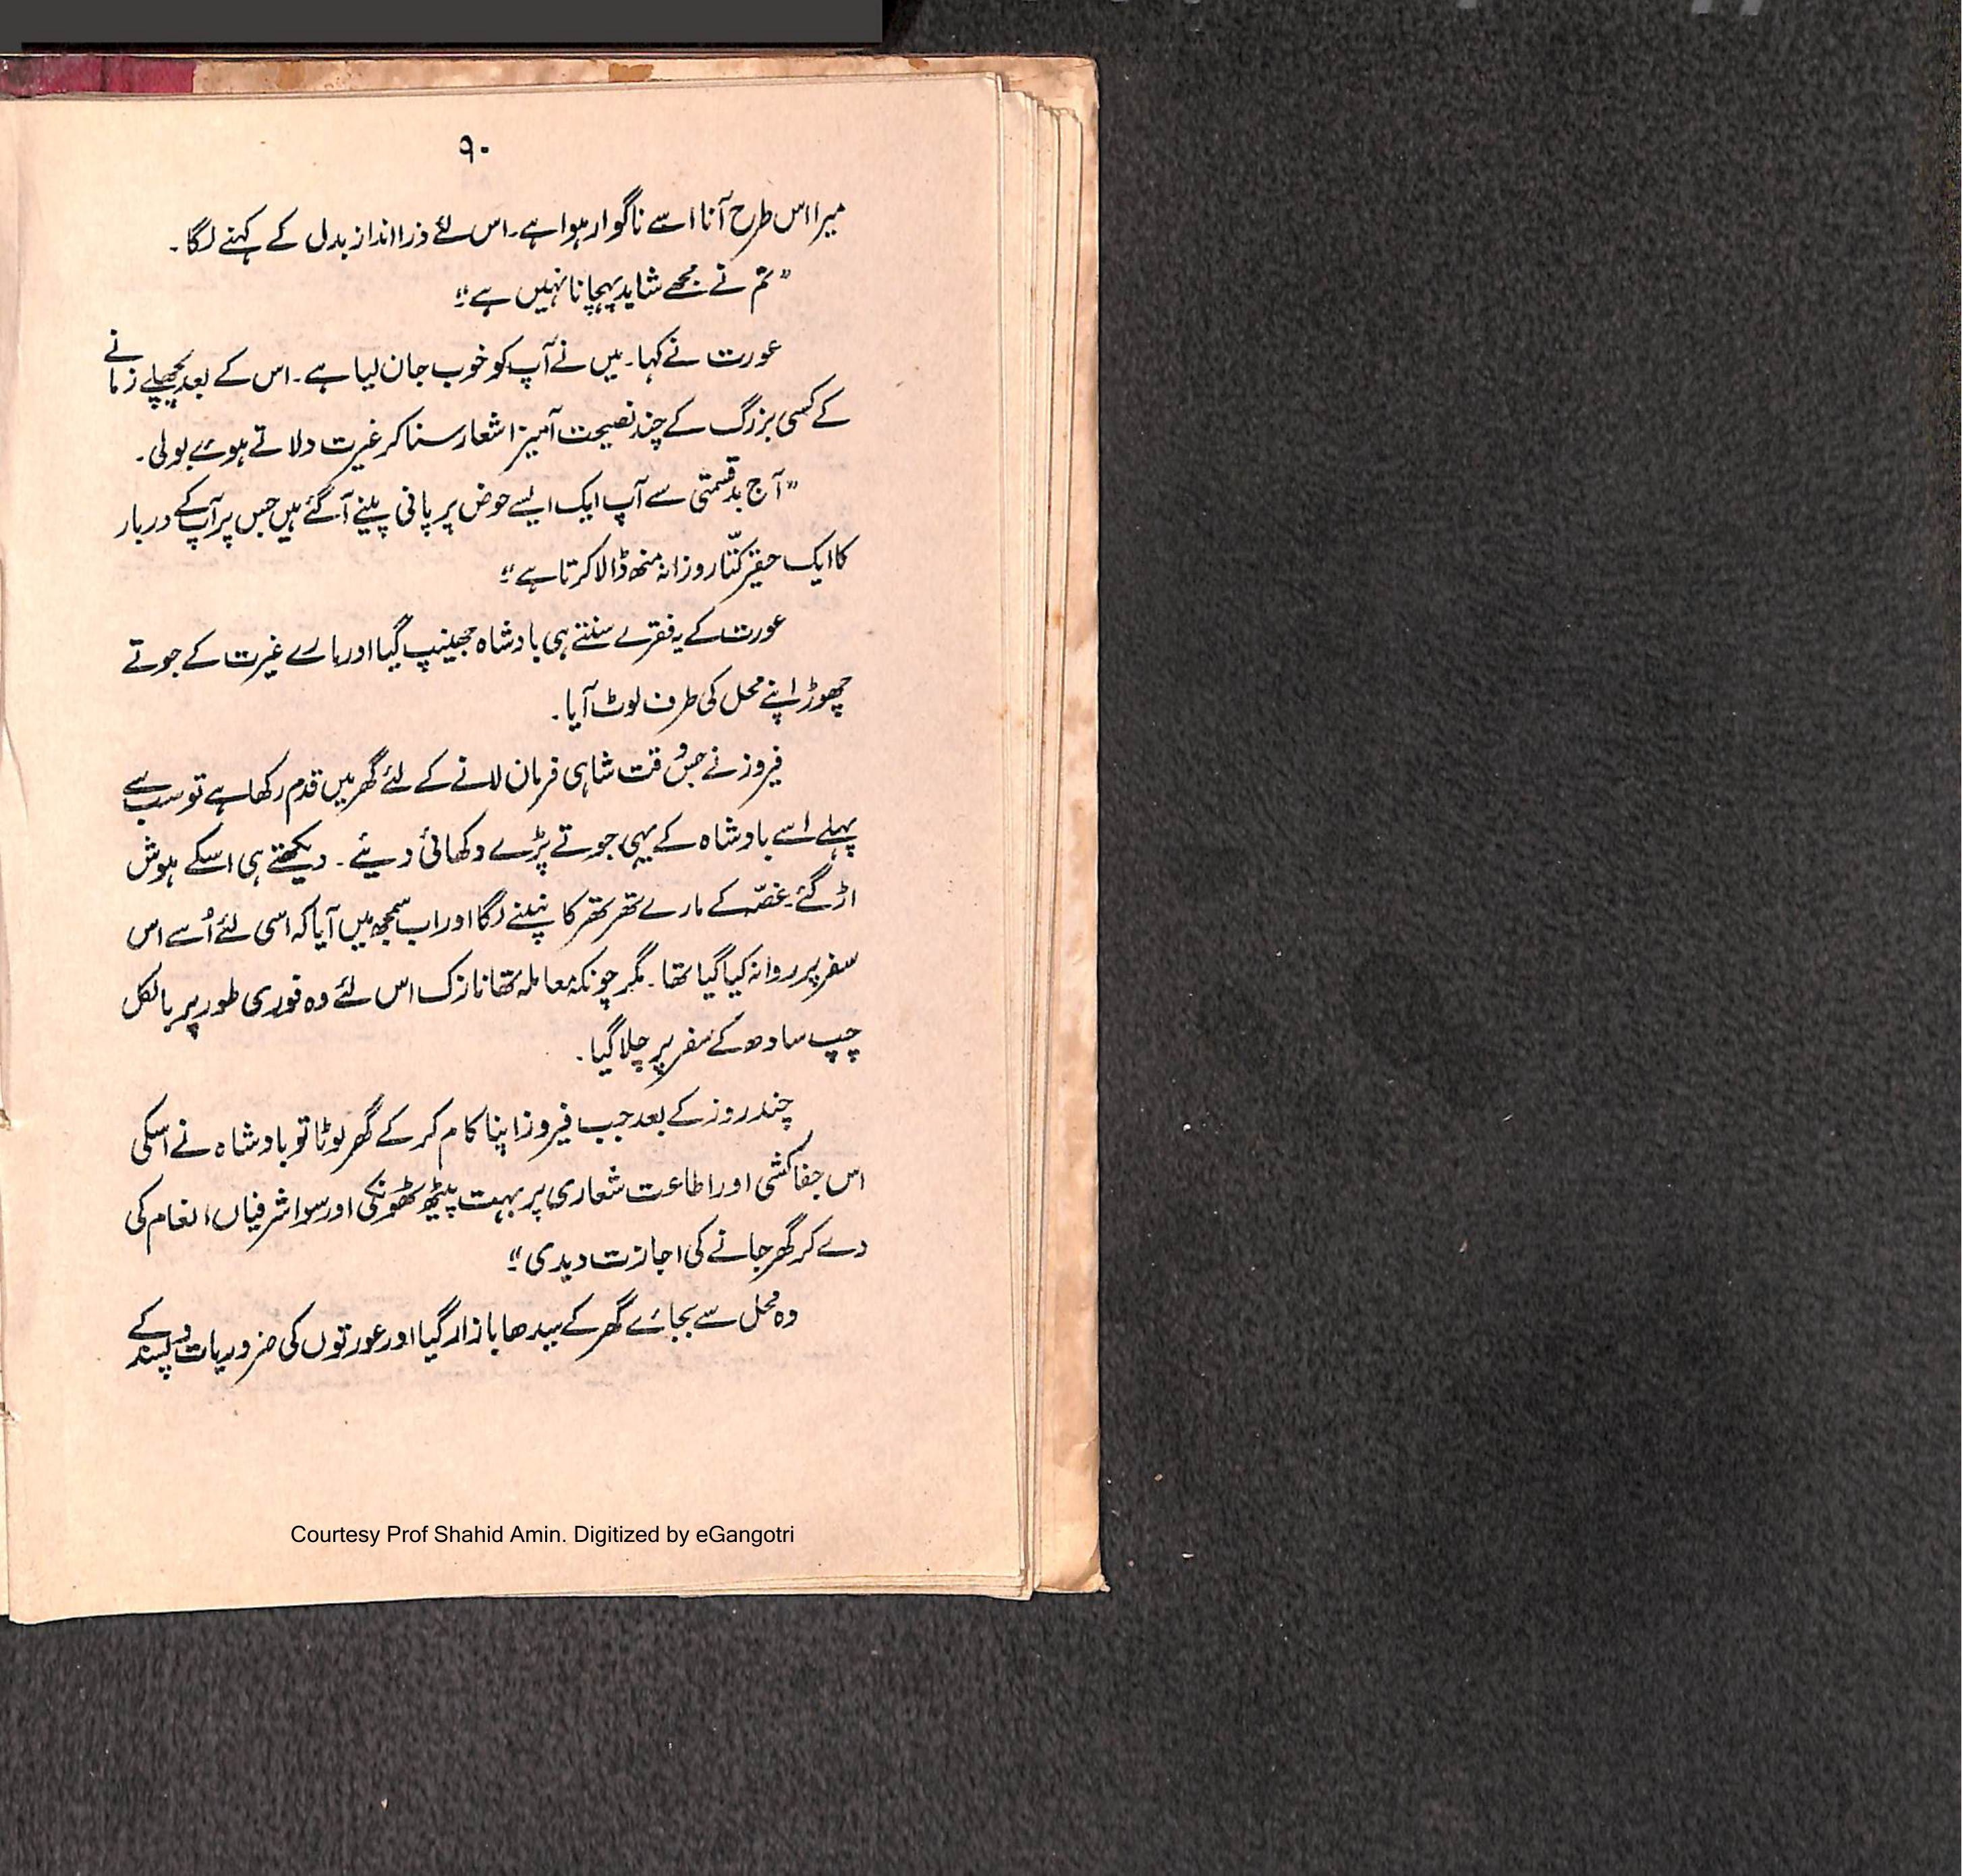 ۹۰
میرا اس طرح آنا اسے ناگوار ہوا ہے۔ اس لئے ذرا انداز بدل کے کہنے لگا۔
"تم نے مجھے شاید پہچانا نہیں ہے"
عورت نے کہا۔ میں نے آپ کو خوب جان لیا ہے۔ اس کے بعد پچھلے زمانے
کے کسی بزرگ کے چند نصیحت آمیز اشعار سنا کر غیرت دلاتے ہوئے بولی۔
"آج بدقسمتی سے آپ ایک ایسے حوض پر پانی پینے آ گئے ہیں جس پر آپ کے دربار
کا ایک حقیر کتّا روزانہ منھ ڈالا کرتا ہے"
عورت کے یہ فقرے سنتے ہی بادشاہ جھینپ گیا اور مارے غیرت کے جوتے
چھوڑ اپنے محل کی طرف لوٹ آیا۔
فیروز نے جس وقت شاہی فرمان لانے کے لئے گھر میں قدم رکھا ہے تو سب سے
پہلے اسے بادشاہ کے یہی جوتے پڑے دکھائی دیئے۔ دیکھتے ہی اسکے ہوش
اڑ گئے۔ غصّہ کے مارے تھر تھر کانپنے لگا اور اب سمجھ میں آیا کہ اسی لئے اُسے اس
سفر پر روانہ کیا گیا تھا۔ مگر چونکہ معاملہ تھا نازک اس لئے وہ فوری طور پر بالکل
چپ سادھ کے سفر پر چلا گیا۔
چند روز کے بعد جب فیروز اپنا کام کر کے گھر لوٹا تو بادشاہ نے اسکی
اس جفاکشی اور اطاعت شعاری پر بہت پیٹھ ٹھونکی اور سو اشرفیاں انعام کی
دے کر گھر جانے کی اجازت دیدی"
وہ محل سے بجائے گھر کے سیدھا بازار گیا اور عورتوں کی ضروریات و پسند کے
Courtesy Prof Shahid Amin. Digitized by eGangotri